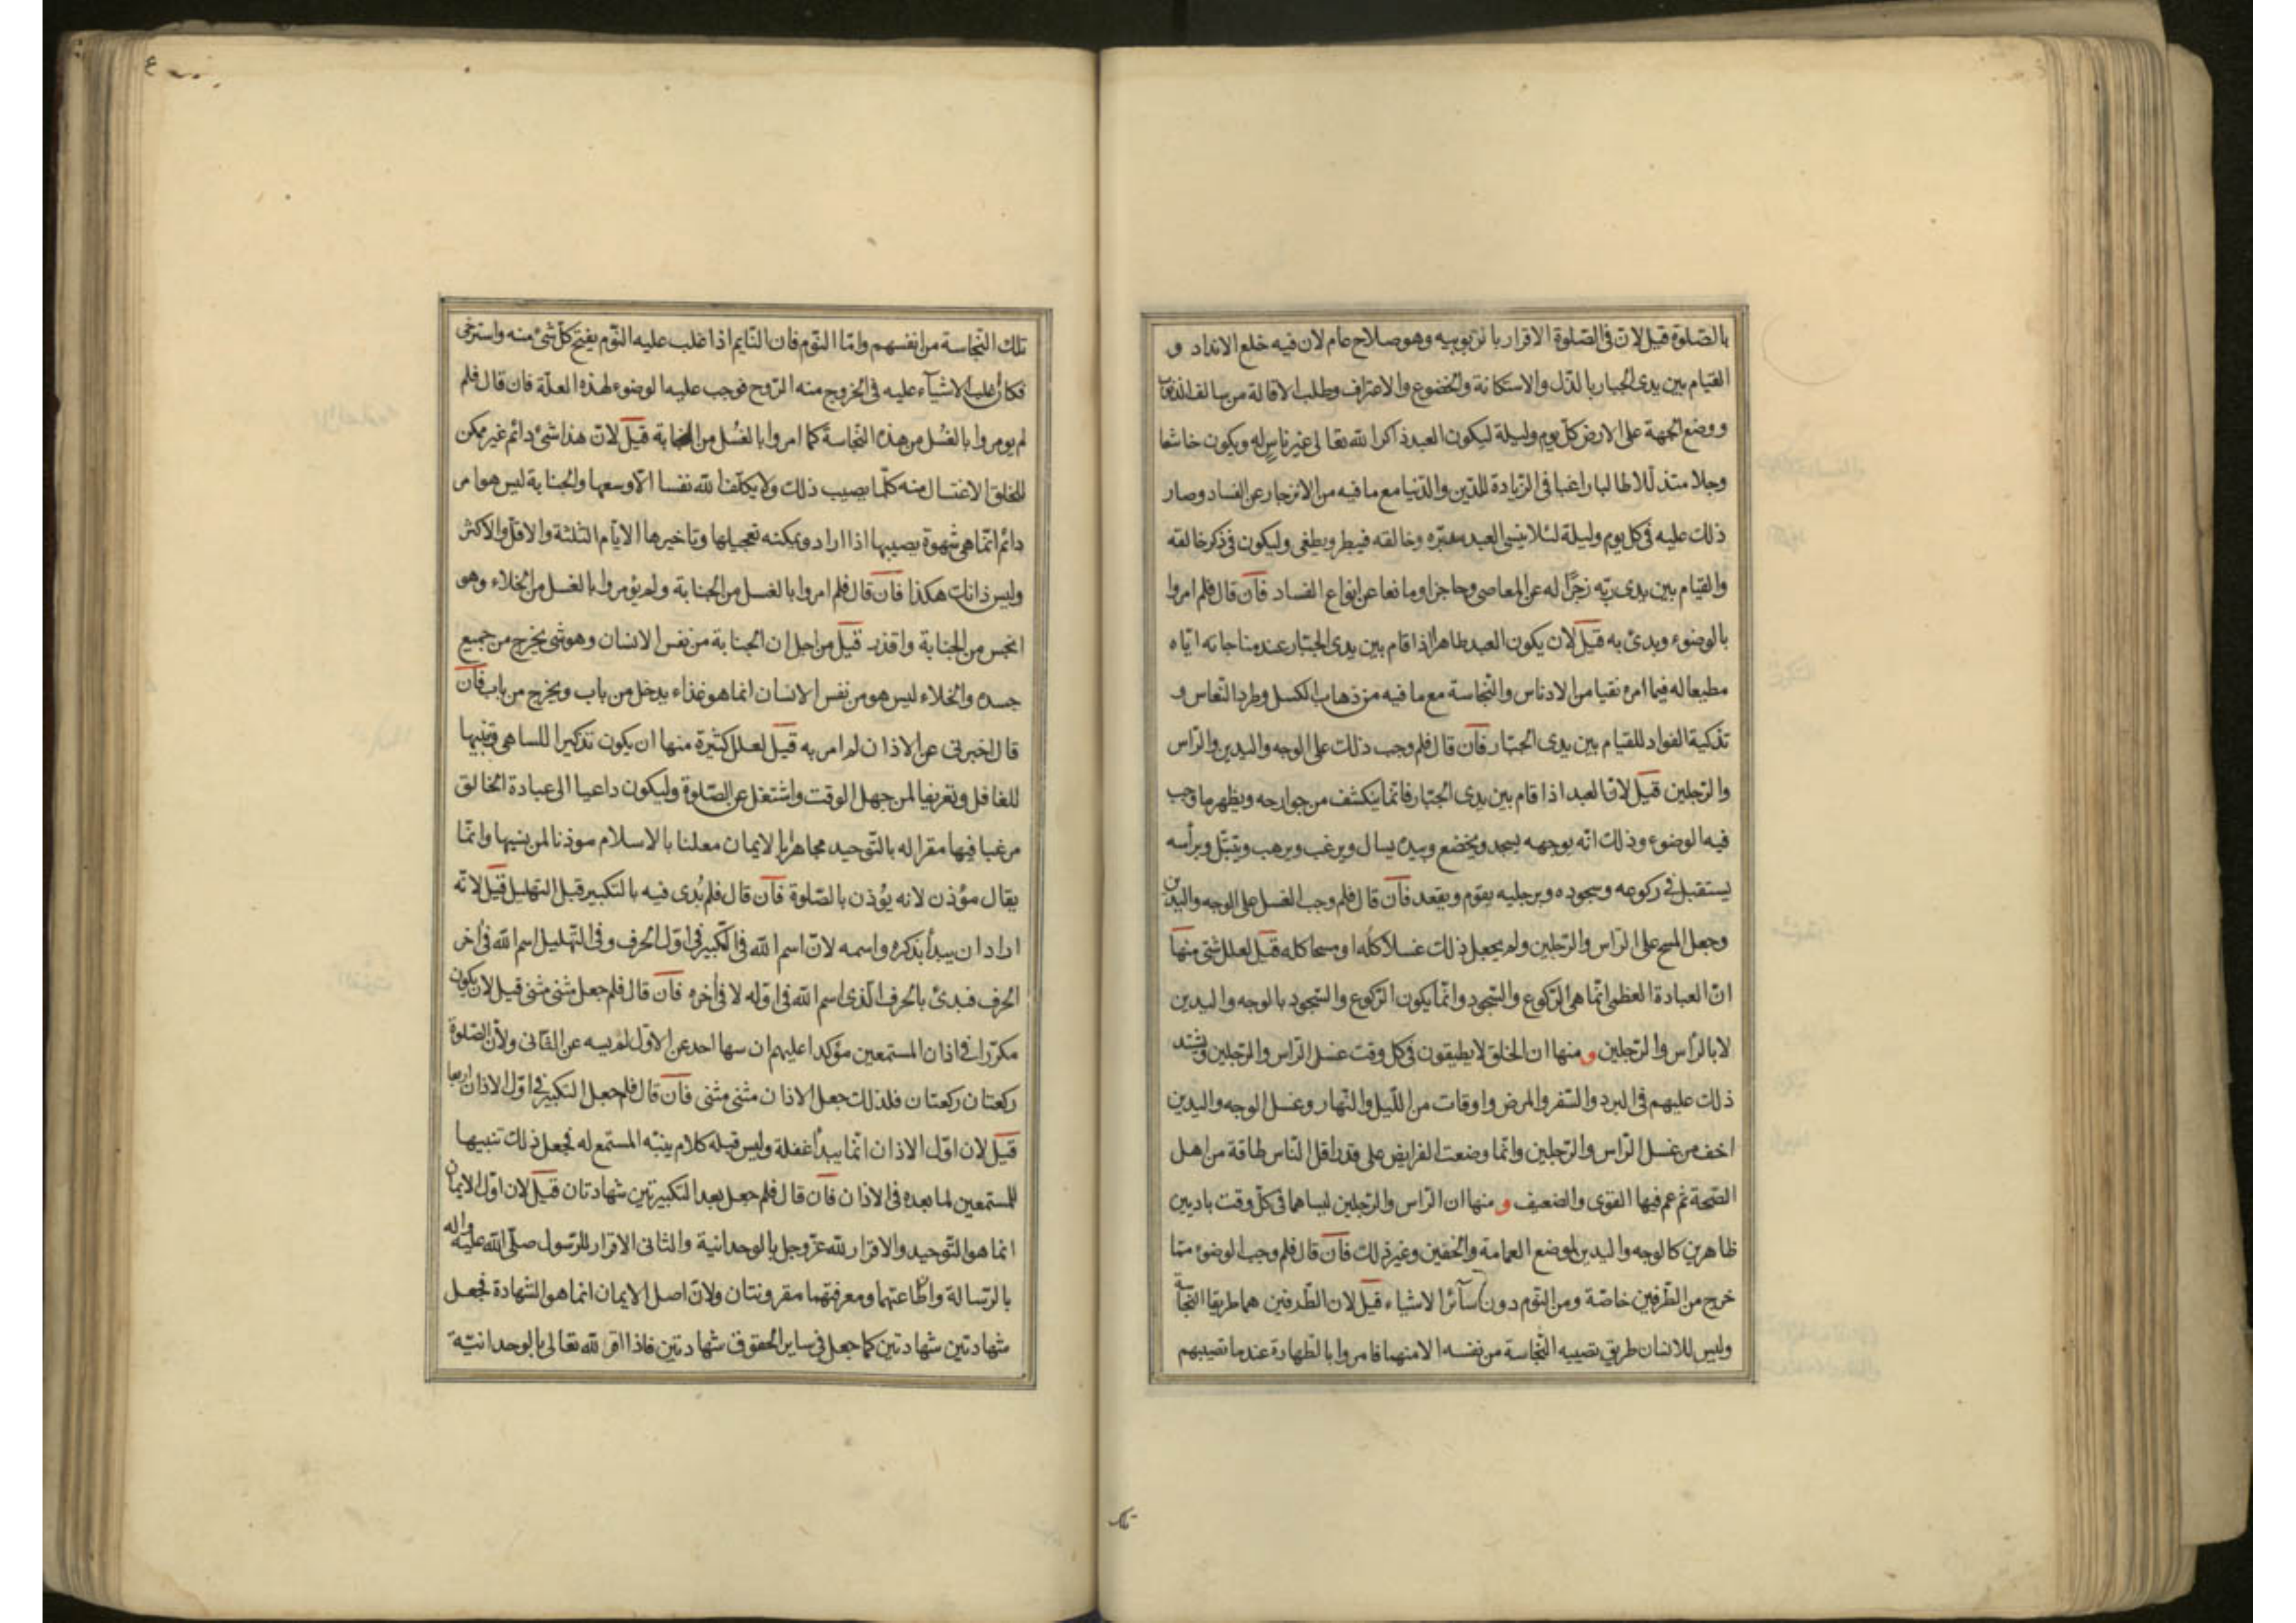 بالصّلوة قيل لانّ فى الصّلوة الاقرار بالربوبيه وهو صلاح عام لان فيه خلع الانداد و
القيام بين يدى الجبار بالذل والاستكانة والخضوع والاعتراف وطلب الاقالة من سالف الذنوب
ووضع الجبهة على الارض كل يوم وليلة ليكون العبد ذاكرا لله تعالى غير ناسٍ له ويكون خاشعا
وجلا متذللا طالبا راغبا فى الزيادة للدّين والدّنيا مع ما فيه من الانزجار عن الفساد وصار
ذلك عليه فى كل يوم وليلة لئلا ينسى العبد مدبّره وخالقه فيبطر ويطغى وليكون فى ذكر خالقه
والقيام بين يدى ربّه زجرًا له عن المعاصى وحاجزا ومانعا عن انواع الفساد فان قال فلم امروا
بالوضوء وبدئ به قيل لان يكون العبد طاهرا اذا قام بين يدى الجبّار عند مناجاته اياه
مطيعا له فيما امره نقيا من الادناس والنّجاسة مع ما فيه من ذهاب الكسل وطرد النّعاس و
تذكية الفواد للقيام بين يدى الجبّار فان قال فلم وجب ذلك على الوجه واليدين والرّاس
والرّجلين قيل لانّ العبد اذا قام بين يدى الجبّار فانّما ينكشف من جوارحه ويظهر ما وجب
فيه الوضوء وذلك انّه بوجهه يسجد ويخضع وبيده يسال ويرغب ويرهب ويتبتّل وبرأسه
يستقبل فى ركوعه وسجوده وبرجليه يقوم ويقعد فان قال فلم وجب الغسل على الوجه واليدين
وجعل المسح على الراس والرّجلين ولم يجعل ذلك غسلا كلّه او مسحا كله قيل لعلل شتى منها
انّ العبادة العظمى انّما هى الرّكوع والسّجود وانّما يكون الرّكوع والسّجود بالوجه واليدين
لا بالرّأس والرّجلين و منها ان الخلق لا يطيقون فى كل وقت غسل الرّاس والرّجلين ويشتد
ذلك عليهم فى البرد والسّفر والمرض واوقات من اللّيل والنّهار وغسل الوجه واليدين
اخف من غسل الرّاس والرّجلين وانّما وضعت الفرايض على قدر اقل النّاس طاقة من اهل
الصّحة ثم عم فيها القوى والضعيف و منها ان الرّاس والرّجلين ليسا هما فى كلّ وقت باديين
ظاهرين كالوجه واليدين لموضع العمامة والخفين وغير ذلك فان قال فلم وجب الوضوء ممّا
خرج من الطّرفين خاصّة ومن النّوم دون سآئر الاشياء قيل لان الطّرفين هما طريقا النّجاسة
وليس للانسان طريق تصيبه النّجاسة من نفسه الا منهما فامروا بالطهارة عند ما تصيبهم
تلك
تلك النّجاسة من انفسهم وامّا النّوم فان النّايم اذا غلب عليه النّوم يفتح كلّ شئ منه واسترخى
فكان اغلب الاشيآء عليه فى الخروج منه الرّوح فوجب عليه الوضوء لهذه العلّة فان قال فلم
لم يومروا بالغسل من هذه النّجاسة كما امروا بالغسل من الجنابة قيل لانّ هذا شئ دائم غير ممكن
للخلق الاغتسال منه كلّما يصيب ذلك ولا يكلّف الله نفسا الّا وسعها والجنابة ليس هو امر
دائم انّما هى شهوة يصيبها اذا اراد ويمكنه تعجيلها وتاخيرها الايّام الثلثة والاقلّ والاكثر
وليس ذانك هكذا فان قال فلم امروا بالغسل من الجنابة ولم يؤمروا بالغسل من الخلاء وهو
انجس من الجنابة واقذر قيل من اجل ان الجنابة من نفس الانسان وهو شئ يخرج من جميع
جسده والخلاء ليس هو من نفس الانسان انما هو غذاء يدخل من باب ويخرج من باب فان
قال اخبرنى عن الاذان لم امر به قيل لعلل كثيرة منها ان يكون تذكيرا للساهى وتنبيها
للغافل وتعريفا لمن جهل الوقت واشتغل عن الصّلوة وليكون داعيا الى عبادة الخالق
مرغبا فيها مقرا له بالتّوحيد مجاهرا بالايمان معلنا بالاسلام موذنا لمن ينسيها وانّما
يقال مؤذن لانه يؤذن بالصّلوة فان قال فلم بُدى فيه بالتكبير قبل التهليل قيل لانّه
اراد ان يبدأ بذكره واسمه لانّ اسم الله فى التّكبير فى اوّل الحرف وفى التّهليل اسم الله فى أخر
الحرف فبدئ بالحرف الّذى اسم الله فى اوّله لا فى أخره فان قال فلم جعل مثنى مثنى قيل لان يكون
مكرّرا فى اذان المستمعين مؤكدا عليهم ان سها احد عن الاوّل لم يسه عن الثّانى ولأنّ الصّلوة
ركعتان ركعتان فلذلك جعل الاذان مثنى مثنى فان قال فلم جعل التكبير فى اوّل الاذان اربعا
قيل لان اوّل الاذان انّما يبدأ غفلة وليس قبله كلام ينبّه المستمع له فجعل ذلك تنبيها
للمستمعين لما بعده فى الاذان فان قال فلم جعل بعد التكبيرتين شهادتان قيل لان اوّل الايمان
انما هو التّوحيد والاقرار لله عزّ وجل بالوحدانية والثانى الاقرار للرّسول صلّى الله عليه واله
بالرّسالة وانّ طاعتهما ومعرفتهما مقرونتان ولانّ اصل الايمان انما هو الشهادة فجعل
شهادتين شهادتين كما جعل فى ساير الحقوق شهادتين فاذا اقر لله تعالى بالوحدانيّة